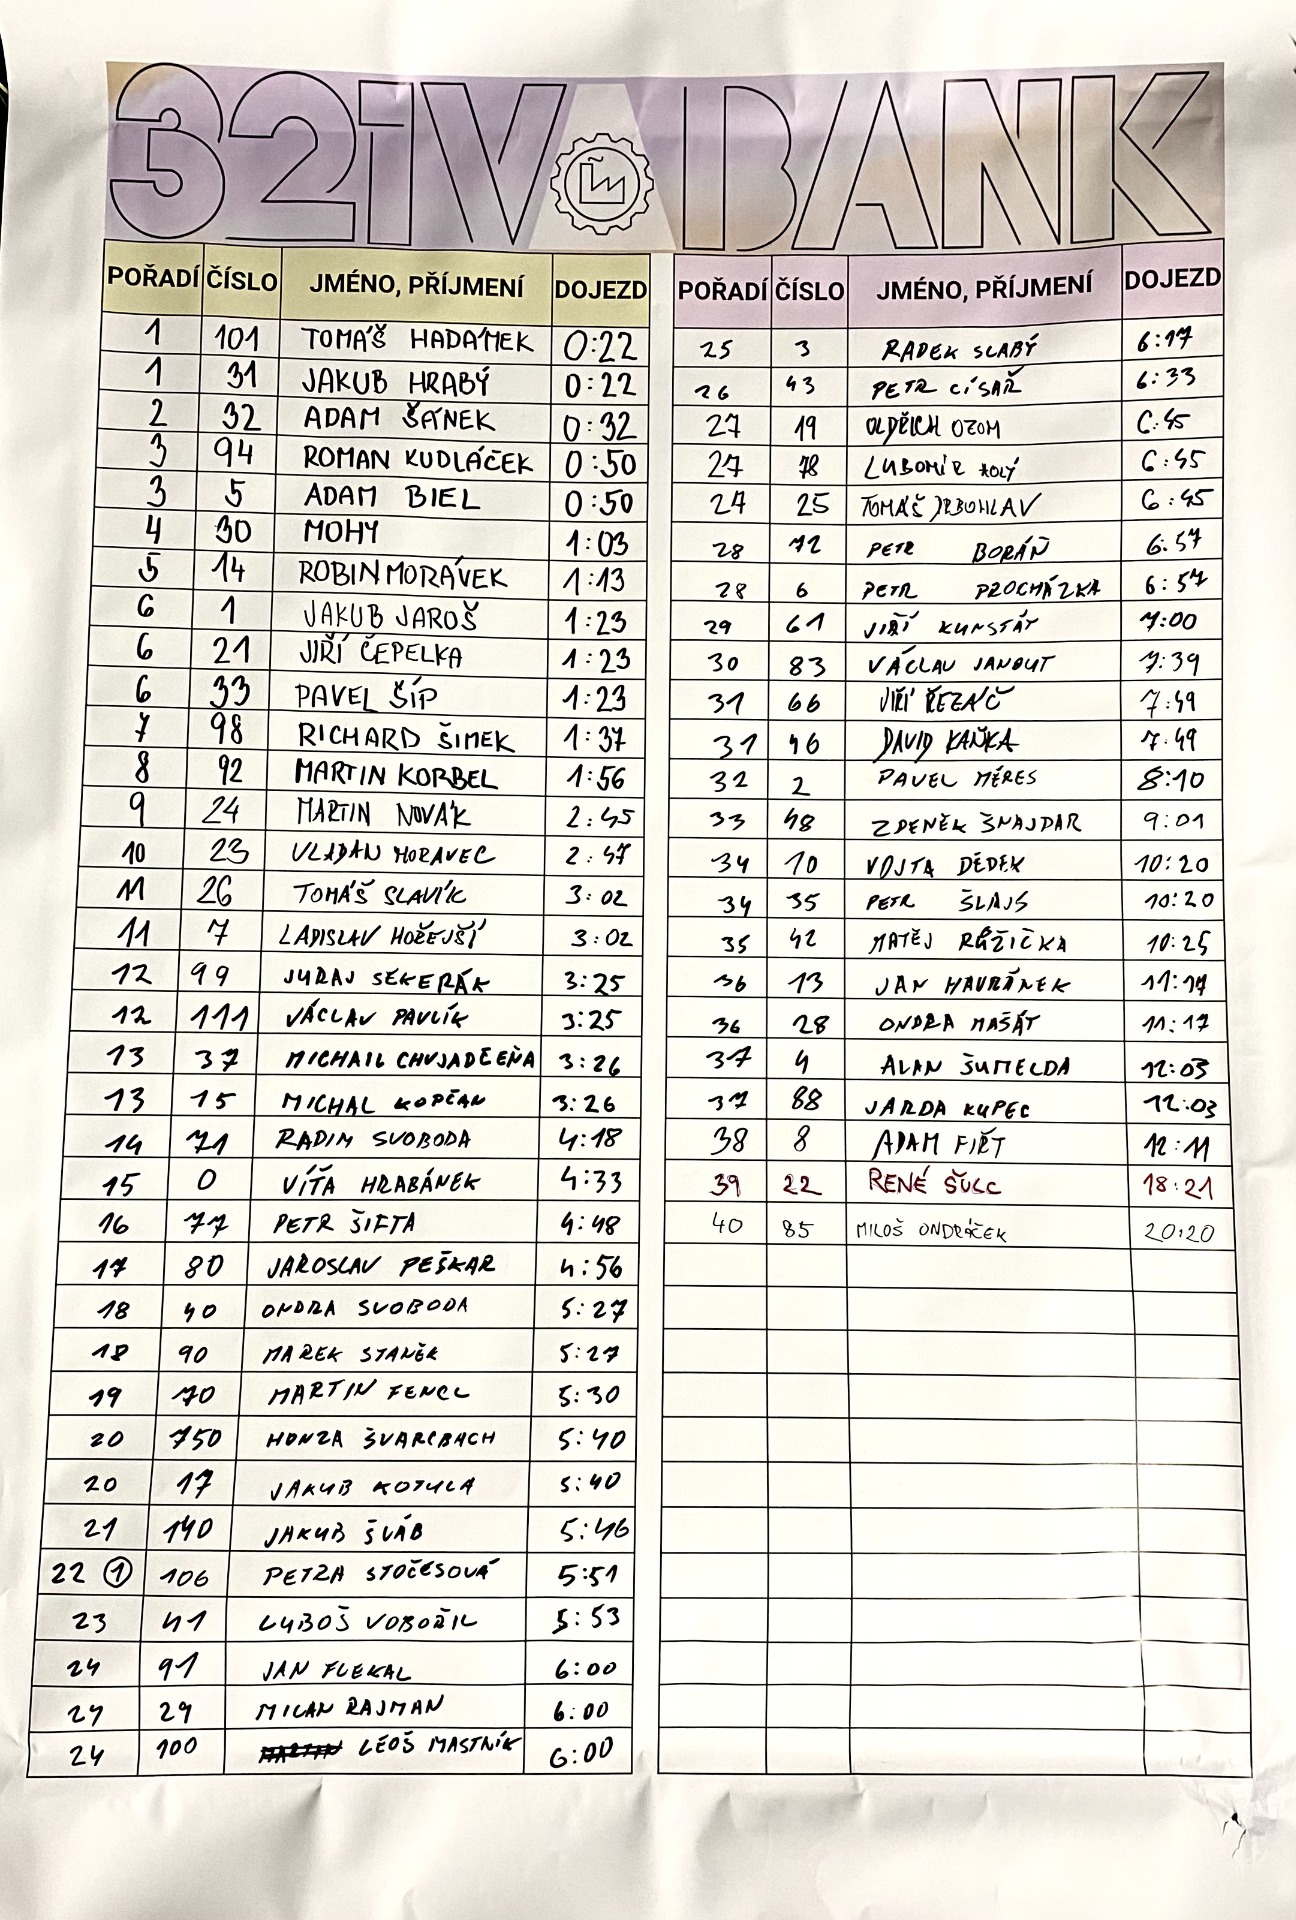 321VABANK
POŘADÍ ČÍSLO JMÉNO, PŘÍJMENÍ DOJEZD
1 101 TOMÁŠ HADÁMEK 0:22
1 31 JAKUB HRABÝ 0:22
2 32 ADAM ŠÁNEK 0:32
3 94 ROMAN KUDLÁČEK 0:50
3 5 ADAM BIEL 0:50
4 30 MOHY 1:03
5 14 ROBIN MORÁVEK 1:13
6 1 JAKUB JAROŠ 1:23
6 21 JIŘÍ ČEPELKA 1:23
6 33 PAVEL ŠÍP 1:23
7 98 RICHARD ŠIMEK 1:37
8 92 MARTIN KORBEL 1:56
9 24 MARTIN NOVÁK 2:45
10 23 VLADAN MORAVEC 2:47
11 26 TOMÁŠ SLAVÍK 3:02
11 7 LADISLAV HOŘEJŠÍ 3:02
12 99 JURAJ SEKERÁK 3:25
12 111 VÁCLAV PAVLÍK 3:25
13 37 MICHAIL CHVJADČEŇA 3:26
13 15 MICHAL KOPČAN 3:26
14 71 RADIM SVOBODA 4:18
15 0 VÍŤA HRABÁNEK 4:33
16 77 PETR ŠIFTA 4:48
17 80 JAROSLAV PEŠKAR 4:56
18 40 ONDRA SVOBODA 5:27
18 90 MAREK STANĚK 5:27
19 70 MARTIN FENCL 5:30
20 750 HONZA ŠVARCBACH 5:40
20 17 JAKUB KOTULA 5:40
21 140 JAKUB ŠVÁB 5:46
22 1 106 PETRA STOČESOVÁ 5:51
23 41 LUBOŠ VOBOŘIL 5:53
24 91 JAN FLEKAL 6:00
24 29 MILAN RAJMAN 6:00
24 100 LEOŠ MASTNÍK 6:00
POŘADÍ ČÍSLO JMÉNO, PŘÍJMENÍ DOJEZD
25 3 RADEK SLABÝ 6:17
26 43 PETR CÍSAŘ 6:33
27 19 OLDŘICH OZOM 6:45
27 78 LUBOMÍR HOLÝ 6:45
27 25 TOMÁŠ 6:45
28 72 PETR BORÁŇ 6:57
28 6 PETR PROCHÁZKA 6:57
29 61 JIŘÍ KUNSTÁT 7:00
30 83 VÁCLAV JANOUT 7:39
31 66 JIŘÍ ŘEZNÍČ 7:49
31 46 DAVID KAŇKA 7:49
32 2 PAVEL MÉRES 8:10
33 48 ZDENĚK ŠNAJDAR 9:01
34 10 VOJTA DĚDEK 10:20
34 35 PETR ŠLAJS 10:20
35 42 MATĚJ RŮŽIČKA 10:25
36 13 JAN HAVRÁNEK 11:17
36 28 ONDRA MAŠÁT 11:17
37 4 ALAN ŠUMELDA 12:03
37 88 JARDA KUPEC 12:03
38 8 ADAM FIŘT 12:11
39 22 RENÉ ŠULC 18:21
40 85 MILOŠ ONDRÁČEK 20:20